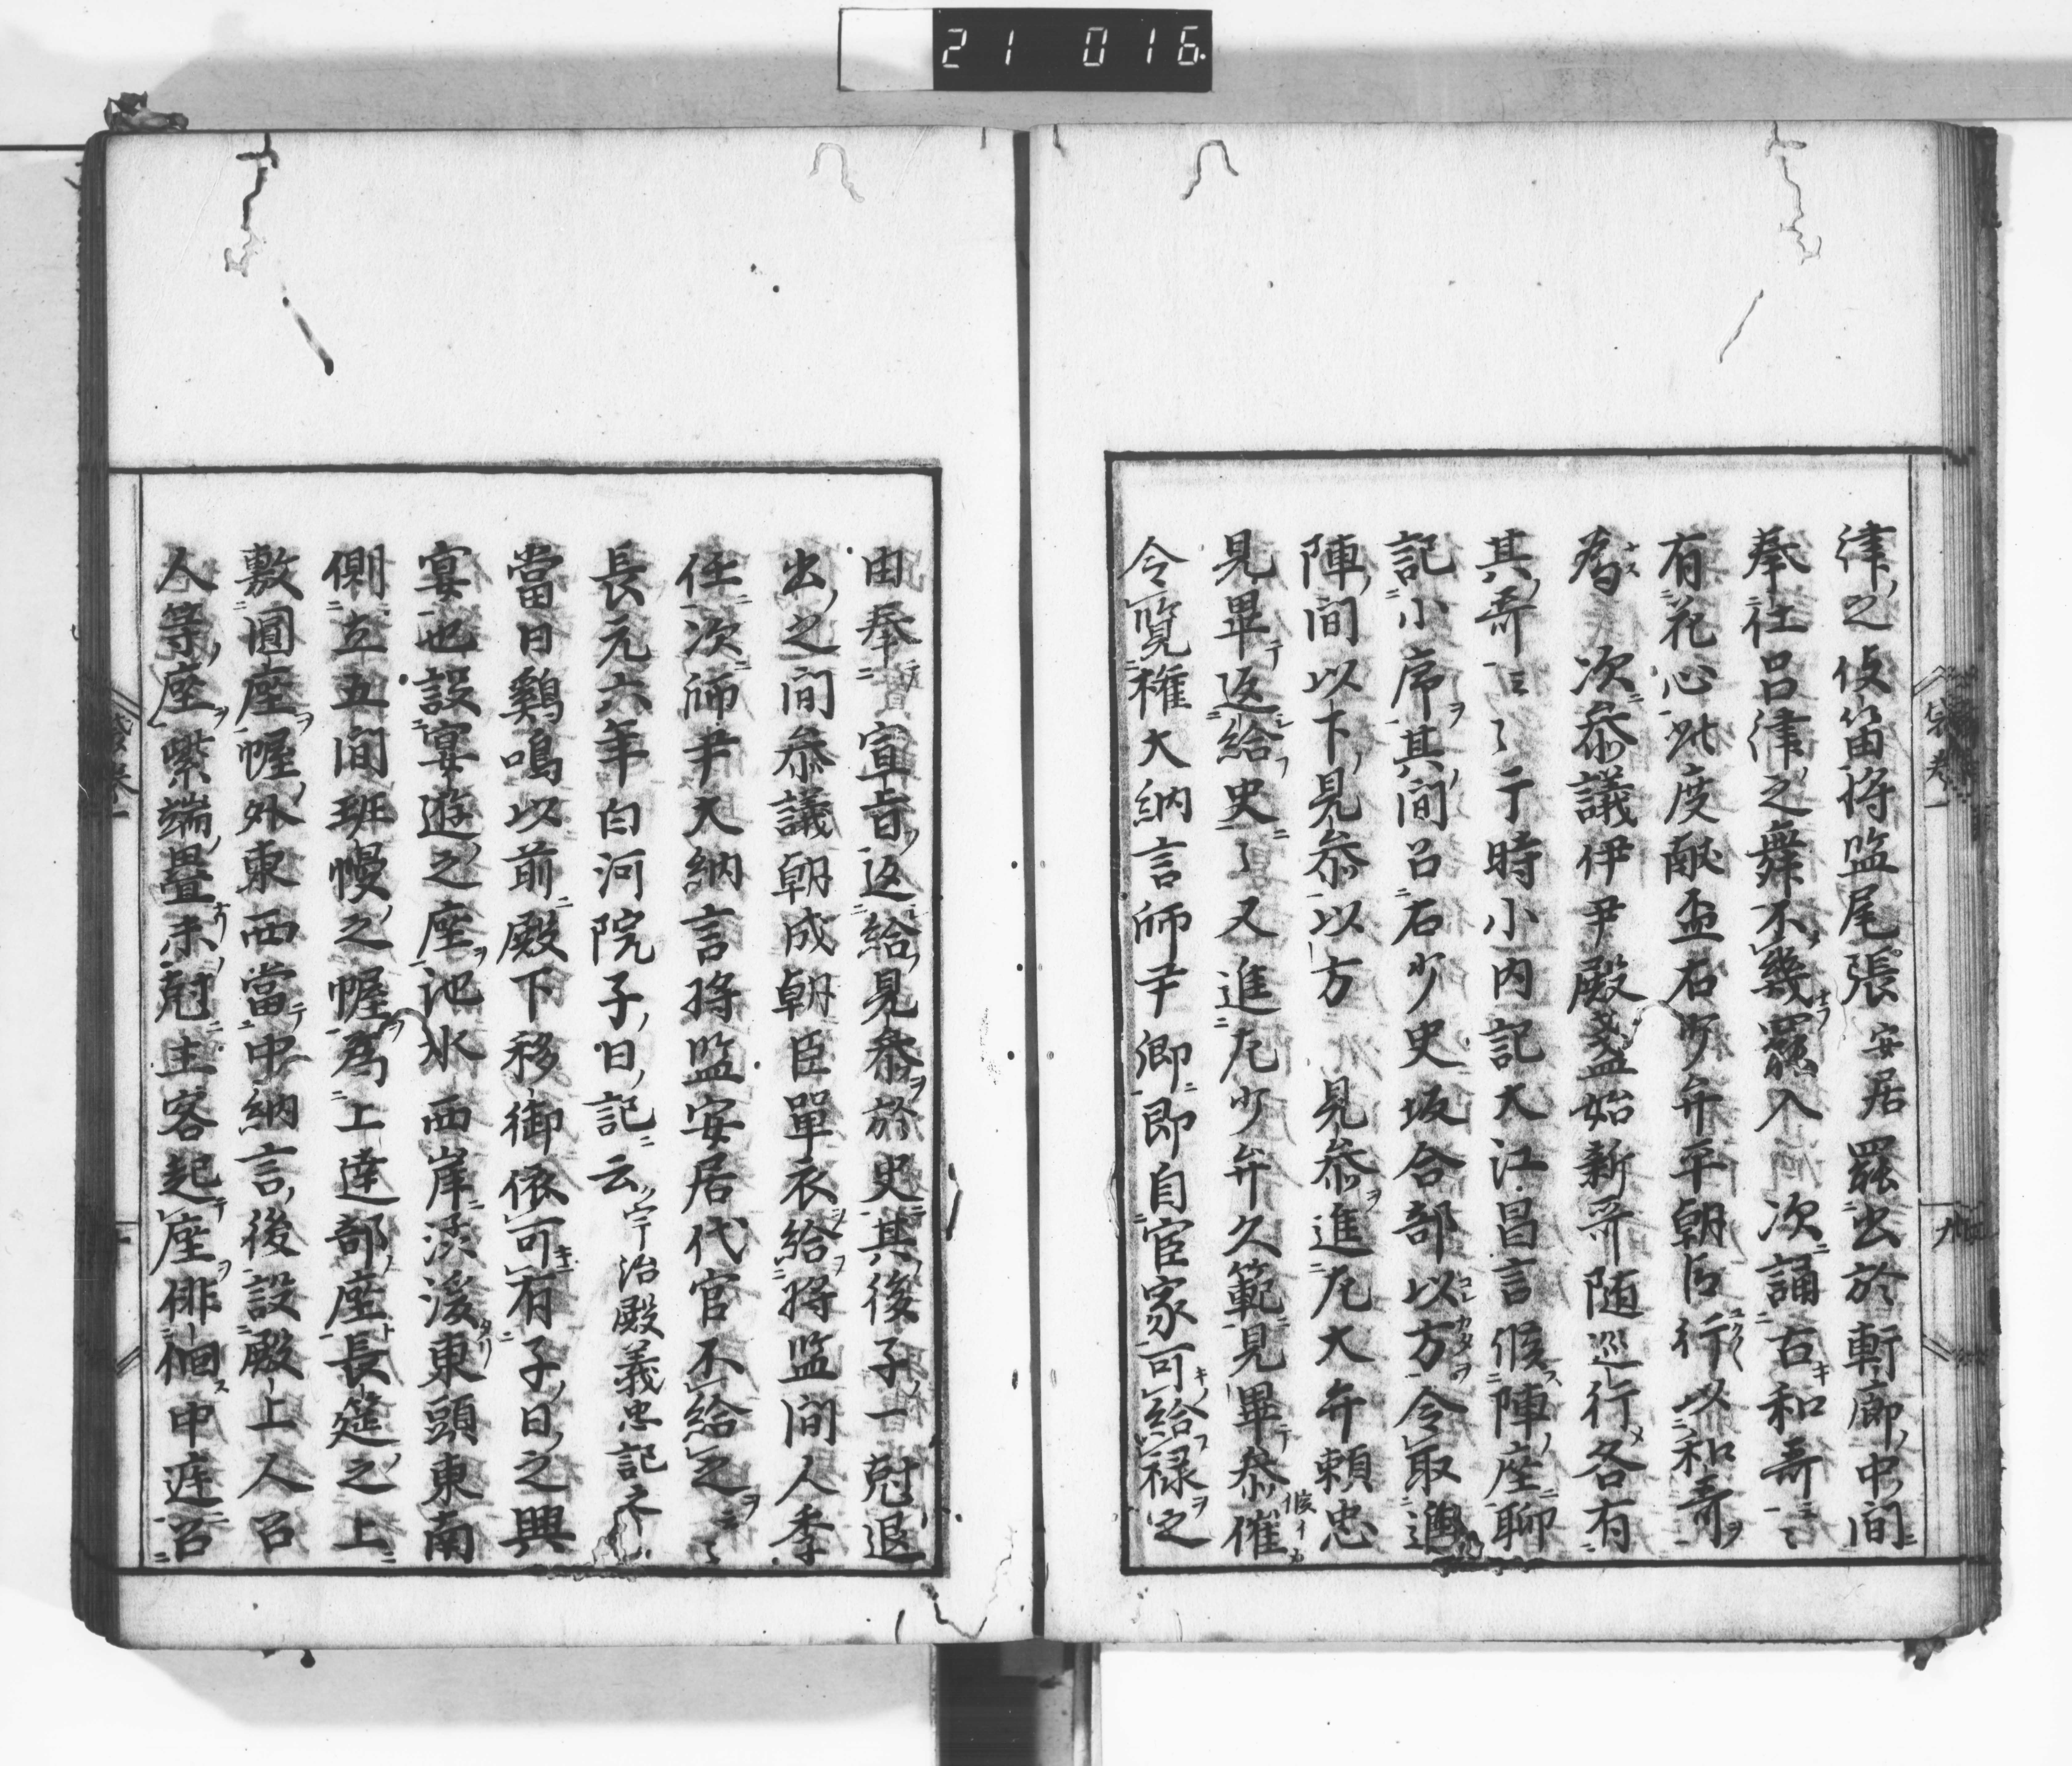 21 016
津之伎笛将監尾張安居羅出於暫廊中間
奉仕呂津之舞不幾罷入次誦古和哥
有花心此度献盃右少弁平朝臣行以和哥
為次参議伊尹殿盞始新哥随巡行各有
其哥于時小内記大江昌言候陣座聊
記小序其間召右少史坂合部以方令取
陣間以下見参以方見参進左大弁頼忠
見畢返給史又進左少弁久範見畢参催
令覧権大納言師尹卿即自宦家可給禄之
由奉宣旨返給見参於史其後子一尅退
出之間参議朝成朝臣單衣給将監間人季
任次師尹大納言将监安居代官不給之
長元六年白河院子日記云宇治殿義忠記之
當日鷄鳴以前殿下移御依可有子日之興
宴也設宴遊之座池水西岸東頭東南
側立五間班幔之幄為上達部座長筵之上
敷圓座幄外東西當中納言後設殿上人召
人等座紫端疊未尅主客起座俳徊中庭召